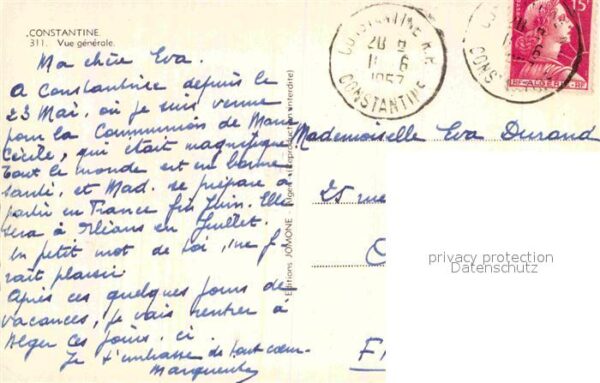 CONSTANTINE.
311. Vue générale.
Ma chère Eva.
A Constantine depuis le
23 Mai, où je suis venue
pour la Communion de Marie
Cécile, qui était magnifique
tout le monde est en bonne
santé, et Mad. se prépare à
partir en France fin Juin. Elle
sera à Orléans en Juillet.
Un petit mot de toi, me f
rait plaisir
Après ces quelques jours de
vacances, je vais rentrer à
Alger ces jours. ci
Je t'embrasse de tout cœur
Marguerite
Editions JOMONE - Alger (Reproduction interdite)
CONSTANTINE R.P.
20 H
11 6
1957
CONSTANTINE
15F
RF ALGERIE RF
Mademoiselle Eva Durand
25 rue
privacy protection
Datenschutz